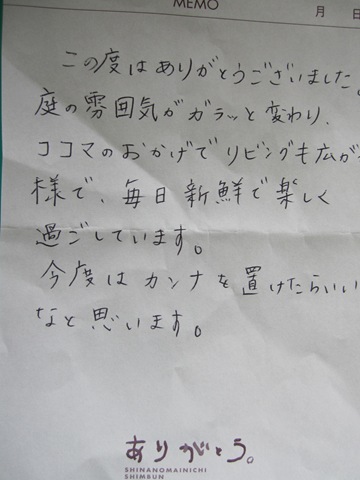 MEMO
月 日
この度はありがとうございました。
庭の雰囲気がガラッと変わり、
ココマのおかげでリビングも広が
様で、毎日新鮮で楽しく
過ごしています。
今度はカンナを置けたらいい
なと思います。
ありがとう。
SHINANOMAINICHI
SHIMBUN